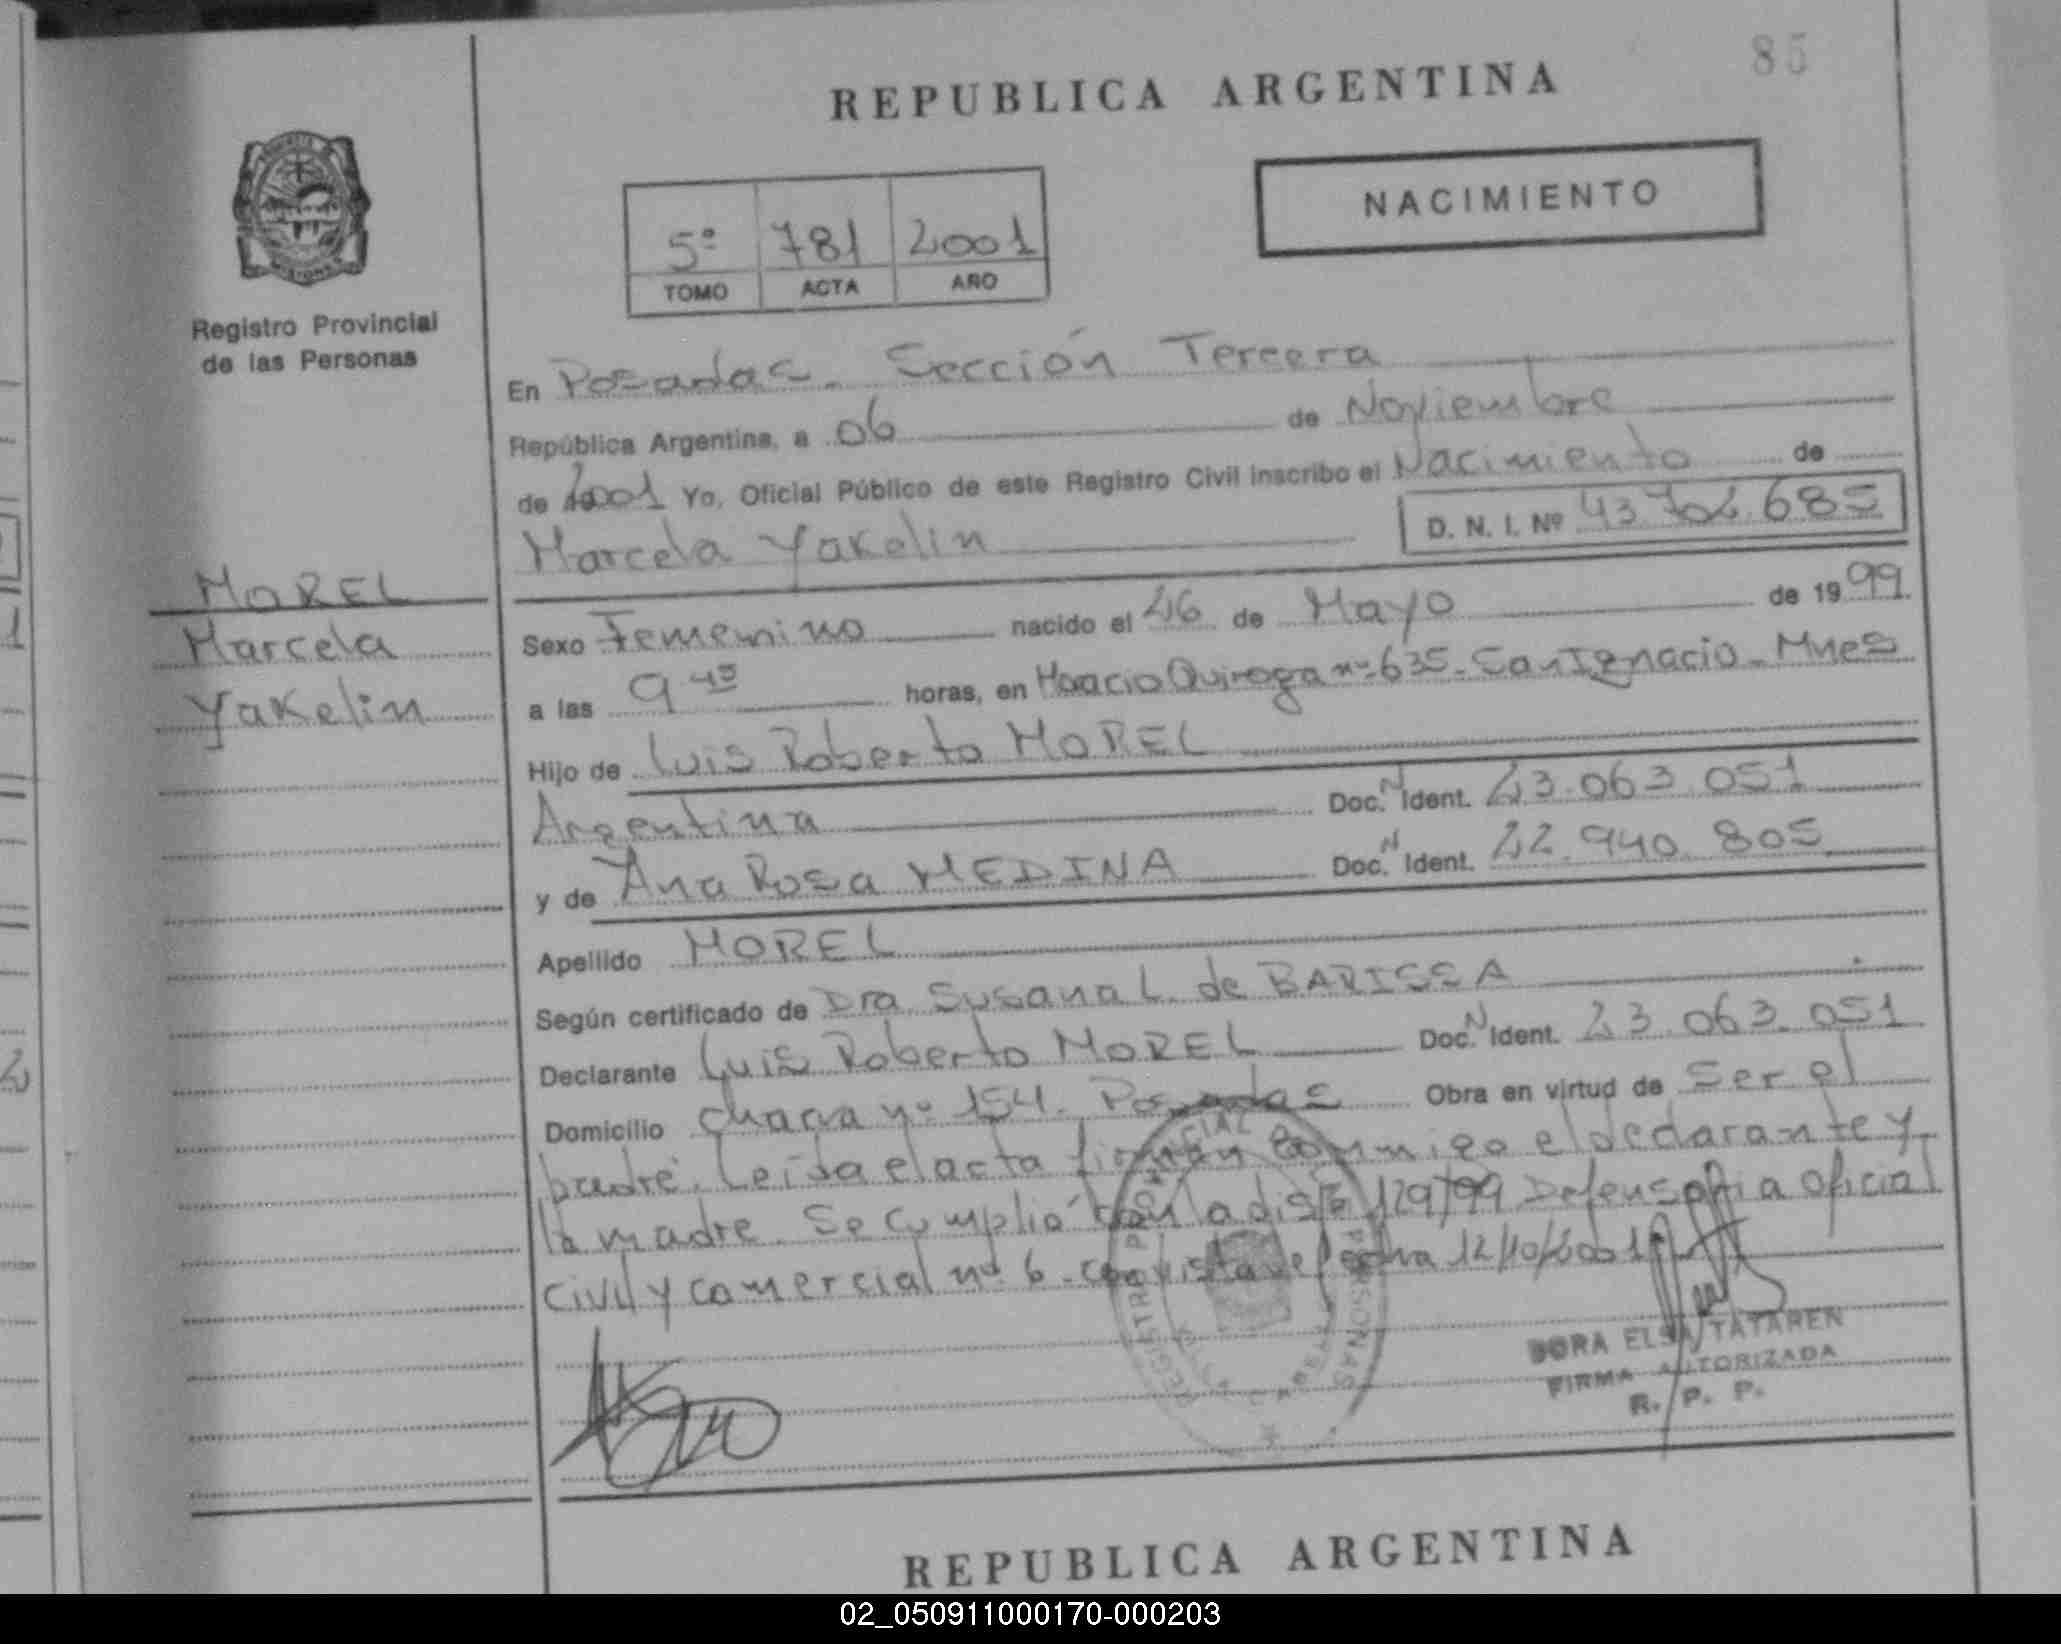 85
REPUBLICA ARGENTINA
NACIMIENTO
5º 781 2001
TOMO ACTA AÑO
Registro Provincial
de las Personas
En Posadas. Sección Tercera
República Argentina, a 06 de Noviembre
de 2001 Yo, Oficial Público de este Registro Civil inscribo el Nacimiento de
Marcela Yakelin D. N. I. Nº 43.702.685
MOREL
Marcela
Yakelin
Sexo Femenino nacido el 26 de Mayo de 1999
a las 9 45 horas, en Horacio Quiroga nº 635. San Ignacio. Mnes
Hijo de Luis Roberto MOREL
Argentina Doc. N Ident. 23.063.051
y de Ana Rosa MEDINA Doc. N Ident. 22.940.805
Apellido MOREL
Según certificado de Dra Susana L. de BARISSA
Declarante Luis Roberto MOREL Doc. N Ident. 23.063.051
Domicilio chacra nº 154. Posadas Obra en virtud de ser el
padre. Leída el acta firman conmigo el declarante y
la madre. Se cumplió con la disp 129/99 Defensoría oficial
civil y comercial nº 6. con vista de fecha 12/10/2001
REGISTRO PROVINCIAL PERSONAS
DORA ELSA TATAREN
FIRMA AUTORIZADA
R. P. P.
REPUBLICA ARGENTINA
02_050911000170-000203